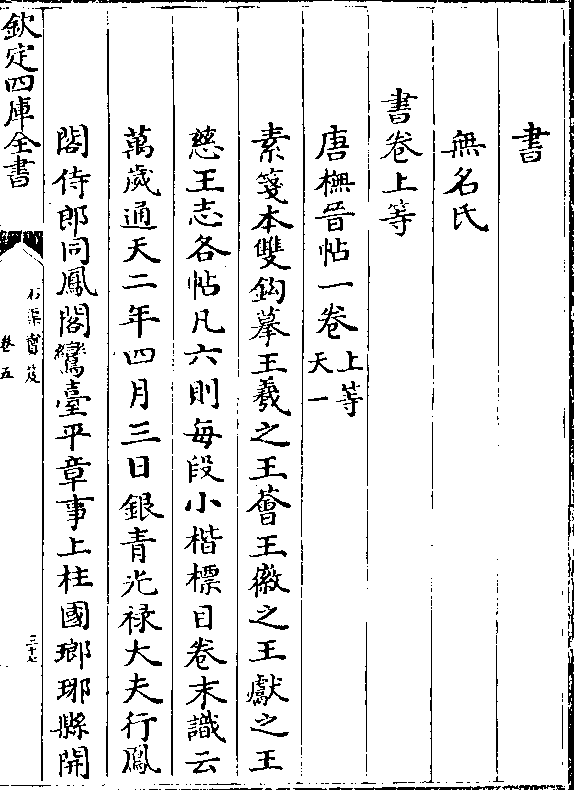 書
無名氏
書卷上等
唐橅晉帖一卷上等天一
素箋本雙鈎摹王羲之王薈王徽之王獻之王
慈王志各帖凡六則每段小楷標目卷末識云
萬歲通天二年四月三日銀青光禄大夫行鳳
閣侍郎同鳳閣鸞臺平章事上柱國瑯琊縣開
欽定四庫全書
石渠寶笈
卷五
三十七